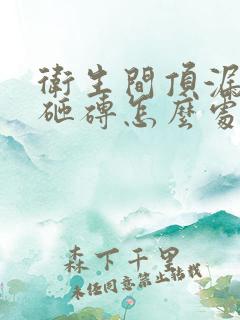 衛生間頂漏
砸磚怎麼處
森下千里
未经同意禁止转载